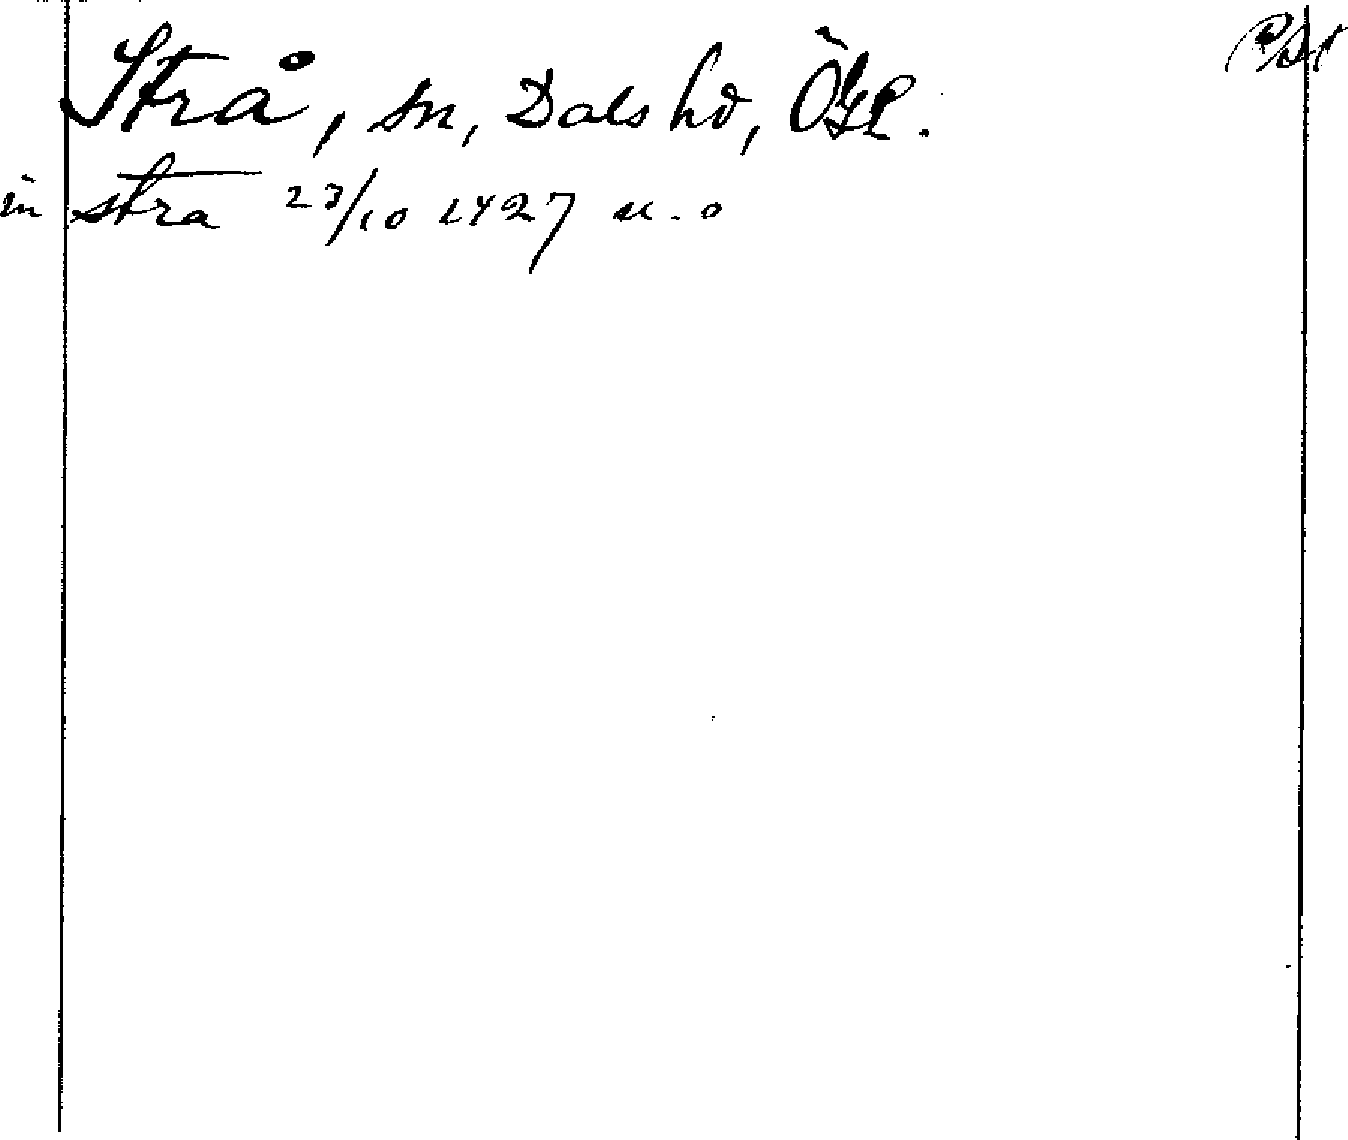 Strå, sn, Dals hd, Ögl.
in stra 23/10 1427 u. o